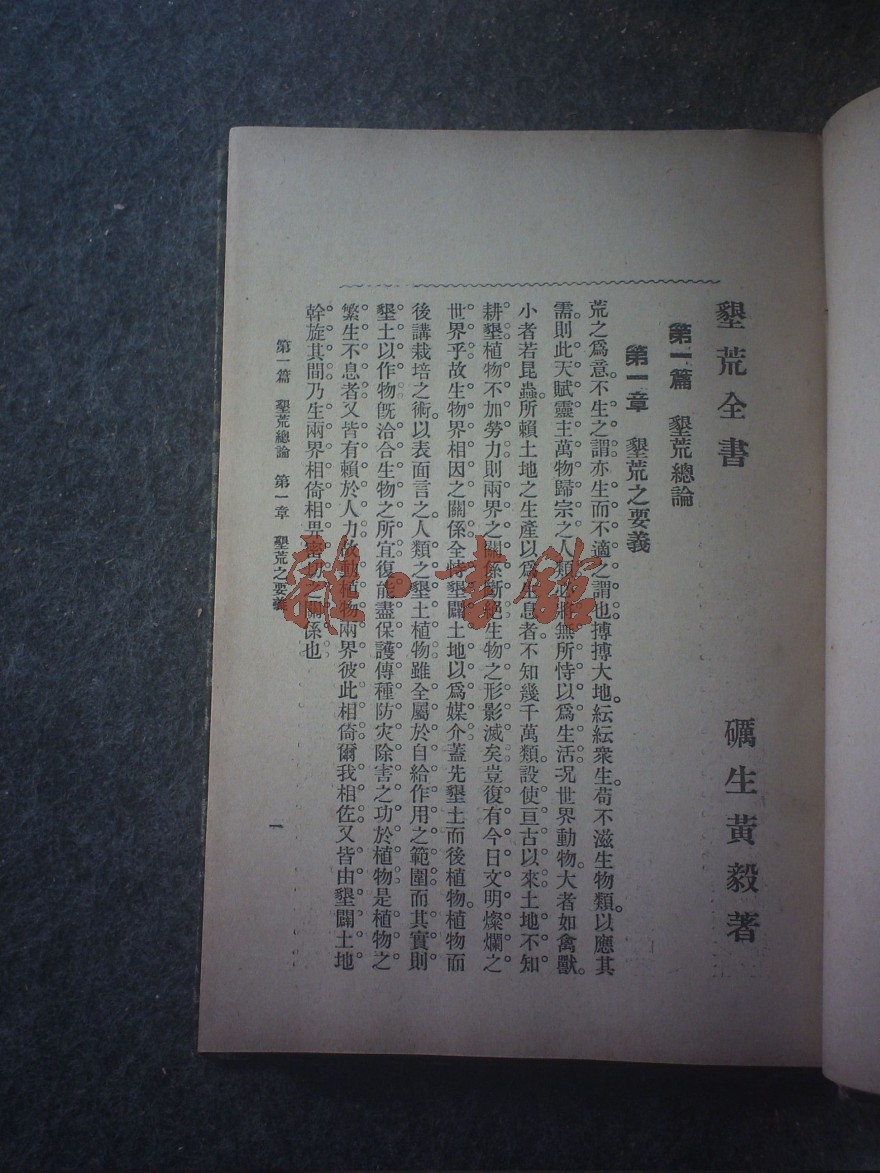 墾荒全書
礪生黃毅著
第一篇　墾荒總論
第一章　墾荒之要義
荒之爲意不生之謂亦生而不適之謂也搏搏大地紜紜衆生苟不滋生物類以應其
需則此天賦靈主萬物歸宗之人類必將無所恃以爲生活況世界動物大者如禽獸
小者若昆蟲所賴土地之生產以爲生息者不知幾千萬類設使亘古以來土地不知
耕墾植物不加勞力則兩界之關係斷絕生物之形影滅矣豈復有今日文明燦爛之
世界乎故生物界相因之關係全恃墾闢土地以爲媒介蓋先墾土而後植物植物而
後講栽培之術以表面言之人類之墾土植物雖全屬於自給作用之範圍而其實則
墾土以作物既洽合生物之所宜復能盡保護傳種防灾除害之功於植物是植物之
繁生不息者又皆有賴於人力故動植物兩界彼此相倚爾我相佐又皆由墾闢土地
幹旋其間乃生兩界相倚相畀密切之關係也
第一篇　墾荒總論　第一章　墾荒之要義
一
雜·書館